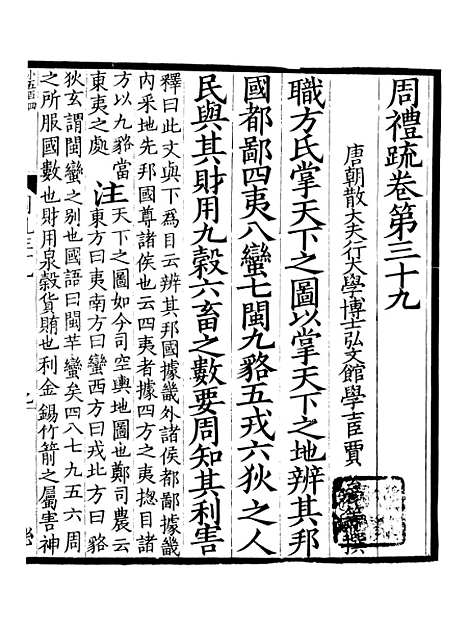 周禮疏卷第三十九
唐朝散大夫行大學博士弘文館學士臣賈
撰
職方氏掌天下之圖以掌天下之地辨其邦
國都鄙四夷八蠻七閩九貉五戎六狄之人
民與其財用九穀六畜之數要周知其利害
釋曰此文與下爲目云辨其邦國據畿外諸侯都鄙據畿
内采地先邦國尊諸侯也云四夷者據四方之夷揔目諸
方以九貉當
東夷之處
注
天下之圖如今司空輿地圖也鄭司農云
東方曰夷南方曰蠻西方曰戎北方曰貉
狄玄謂閩蠻之別也國語曰閩芈蠻矣四八七九五六周
之所服國數也財用泉穀貨賄也利金錫竹箭之屬害神